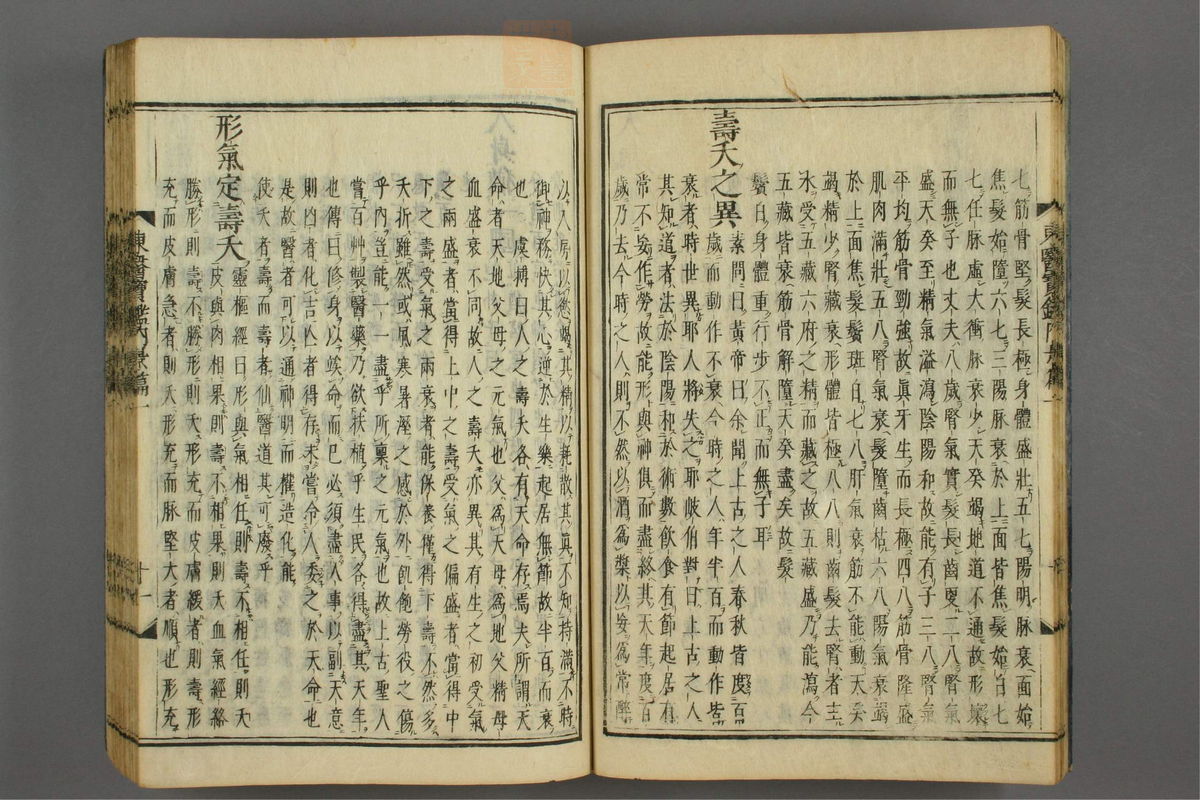 七筋骨堅髮長極身體盛壯五七陽明脉衰面始
焦髮始墮六七三陽脉衰於上面皆焦髮始白七
七任脉虛大衝脉衰少天癸竭地道不通故形壞
而無子也丈夫八歲腎氣實髮長齒更二八腎氣
盛天癸至精氣溢瀉陰陽和故能有子三八腎氣
平均筋骨勁強故眞牙生而長極四八筋骨隆盛
肌肉滿壯五八腎氣衰髮墮齒枯六八陽氣衰竭
於上面焦髮鬢斑白七八肝氣衰筋不能動天癸
竭精少腎藏衰形體皆極八八則齒髮去腎者主
水受五藏六府之精而藏之故五藏盛乃能瀉今
五藏皆衰筋骨解墮天癸盡矣故髮
鬢白身體重行步不正而無子耳
壽夭之異
素問曰黃帝曰余聞上古之人春秋皆度百
歲而動作不衰今時之人年半百而動作皆
衰者時世異耶人將失之耶岐伯對曰上古之人
其知道者法於陰陽和於術數飮食有節起居有
常不妄作勞故能形與神俱而盡終其天年度百
歲乃去今時之人則不然以酒爲漿以妄爲常醉
東醫寶鑑內景篇一
以入房以慾竭其精以耗散其眞不知持滿不時
御神務快其心逆於生樂起居無節故半百而衰
也 虞摶曰人之壽夭各有天命存焉夫所謂天
命者天地父母之元氣也父爲天母爲地父精母
血盛衰不同故人之壽夭亦異其有生之初受氣
之兩盛者當得上中之壽受氣之偏盛者當得中
下之壽受氣之兩衰者能保養僅得下壽不然多
夭折雖然或風寒暑濕之感於外飢飽勞役之傷
乎內豈能一一盡乎所稟之元氣也故上古聖人
嘗百艸製醫藥乃欲扶植乎生民各得盡其天年
也傳曰修身以竢命而已必須盡人事以副天意
則凶者化吉亡者得存未嘗令人委之於天命也
是故醫者可以通神明而權造化能
使夭者壽而壽者仙醫道其可廢乎
形氣定壽夭
靈樞經曰形與氣相任則壽不相任則夭
皮與肉相果則壽不相果則夭血氣經絡
勝形則壽不勝形則夭形充而皮膚緩者則壽形
充而皮膚急者則夭形充而脉堅大者順也形充
東醫寶鑑內景篇一
十一